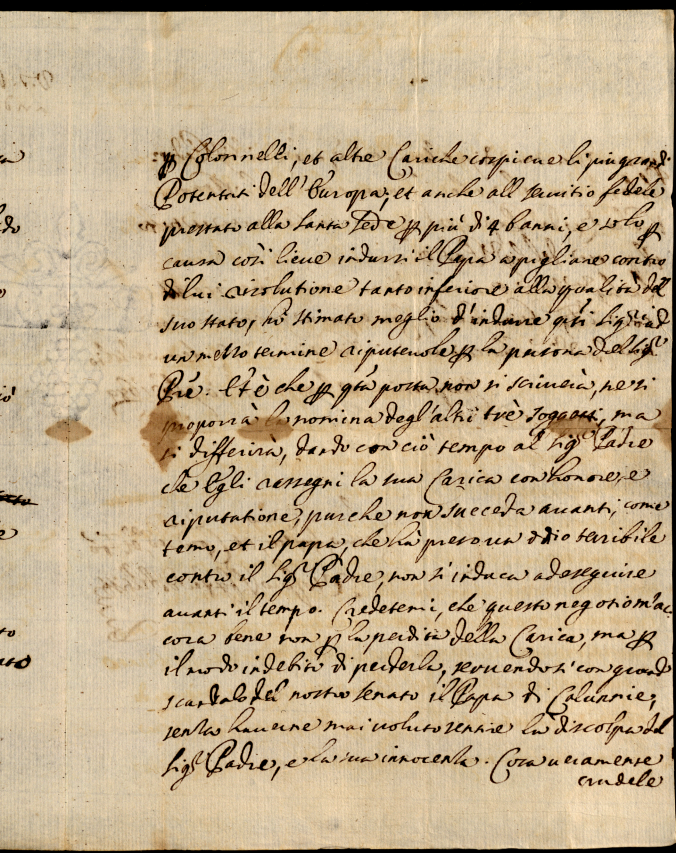 ꝑ Colonnelli, et altre Cariche cospicue li piu grandi
Potentati dell'Europa, et anche all servitio fedele
prestato alla Santa Sede ꝑ più di 46 anni, e solo ꝑ
causa così lieve indursi il Papa a pigliare contro
di lui risolutione tanto inferiore alla qualità del
suo stato, hò stimato meglio d'indurre
un mezzo termine riputevole ꝑ la persona del Sigr
Pre. Et è che ꝑ qta posta non si scriverà, ne si
proporrà la nomina degl'altri trè soggetti, ma
si differirà, dando con ciò tempo al Sigr Padre
che Egli rassegni la sua Carica con honore, e
riputatione, purche non succeda avanti, come
temo, et il papa, che hà preso un odio terribile
contro il Sigr Padre, non s'induca ad eseguire
avanti il tempo. Credetemi, che questo negotio m'ac
cora bene non ꝑ la perdita della Carica, ma ꝑ
il modo indebito di perderla, servendosi con grand
scandalo del nostro Senato il Papa di Calunnie,
senza haverne mai voluto sentire la discolpa del
Sigr Padre, e la sua innocenza. Cosa veramente
crudele